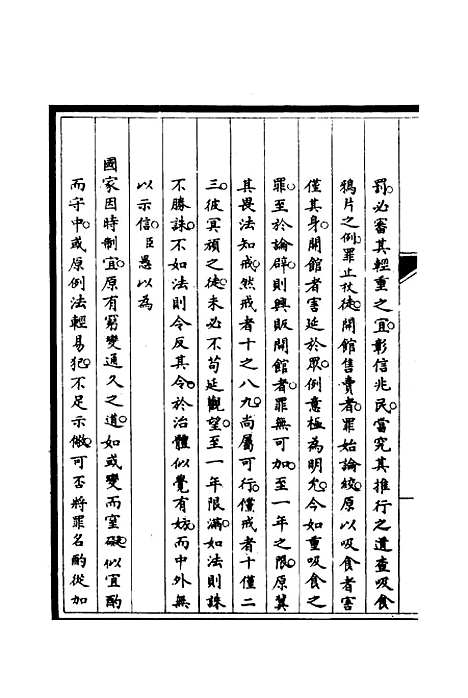 罰必審其輕重之宜彰信兆民當究其推行之道查吸食
鴉片之例罪止杖徒開館售賣者罪始論絞原以吸食者害
僅其身開館者害延於眾例意極為明允今如重吸食之
罪至於論辟則興販開館者罪無可加至一年之限原冀
其畏法知戒然戒者十之八九尚屬可行僅戒者十僅二
三彼冥頑之徒未必不苟延觀望至一年限滿如法則誅
不勝誅不如法則令反其令於治體似覺有妨而中外無
以示信臣愚以為
國家因時制宜原有窮變通久之道如或變而窒礙似宜酌
而守中或原例法輕易犯不足示儆可否將罪名酌從加